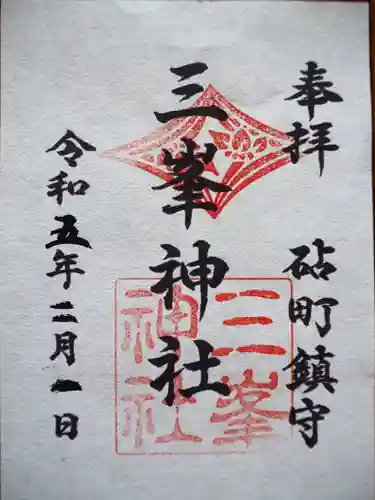 奉拝 砧町鎮守
三峯神社
令和五年二月一日
三峯
神社